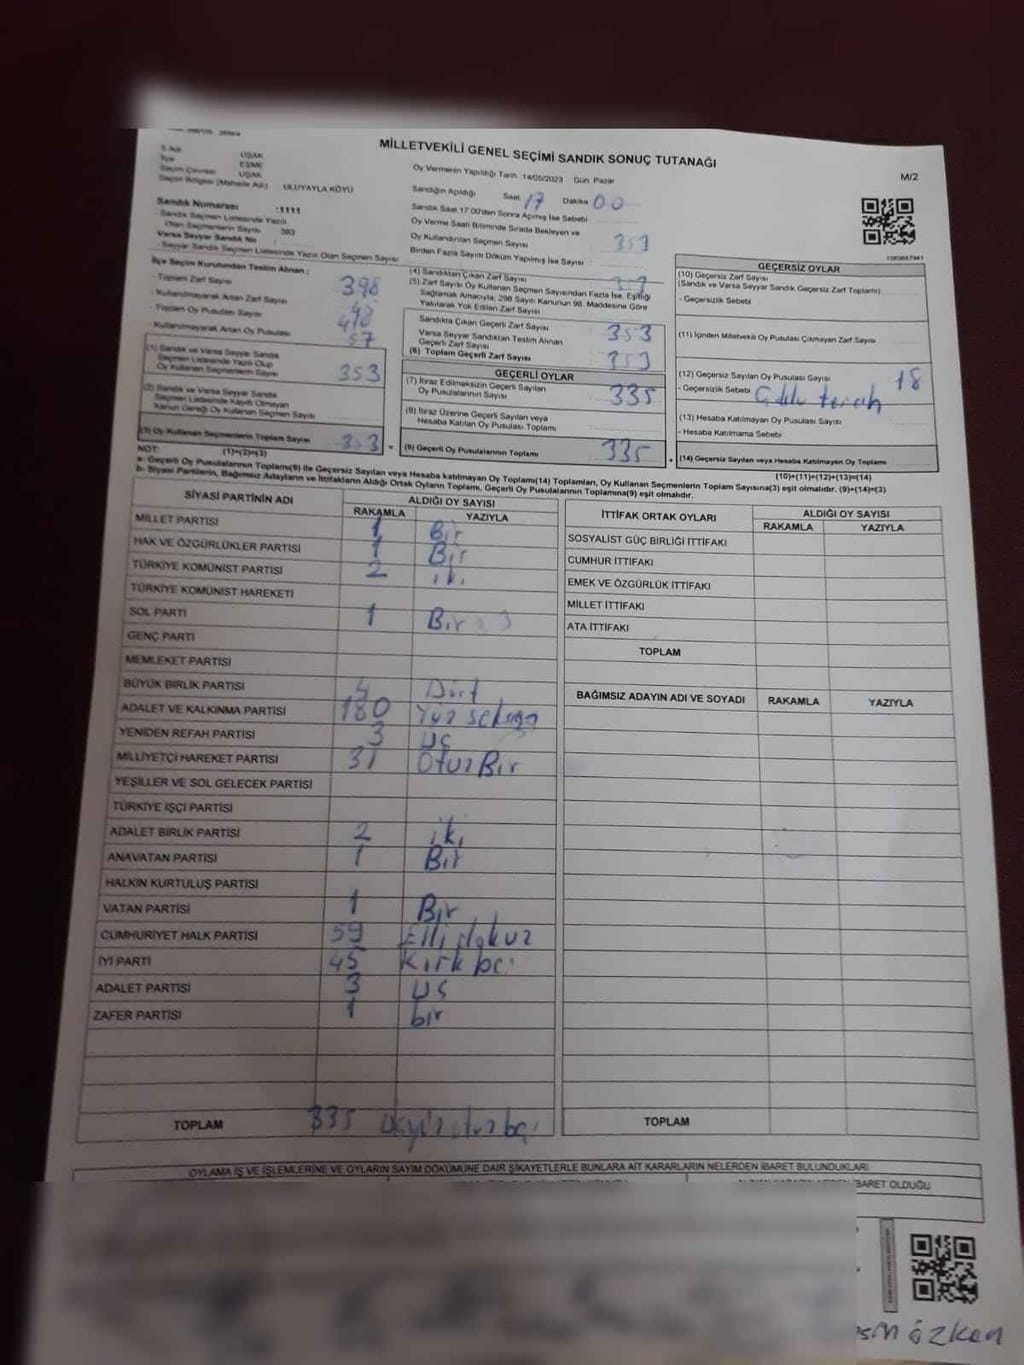 MİLLETVEKİLİ GENEL SEÇİMİ SANDIK SONUÇ TUTANAĞI
M/2
İl Adı UŞAK
İlçe EŞME
Seçim Çevresi UŞAK
Seçim Bölgesi (Mahalle Adı) ULUYAYLA KÖYÜ
Oy Vermenin Yapıldığı Tarih 14/05/2023 Gün Pazar
Sandığın Açıldığı Saat 17 Dakika 00
Sandık Saat 17.00'den Sonra Açılmış İse Sebebi
Oy Verme Saati Bitiminde Sırada Bekleyen ve
Oy Kullandırılan Seçmen Sayısı 353
Birden Fazla Sayım Döküm Yapılmış İse Sayısı :
Sandık Numarası :1111
- Sandık Seçmen Listesinde Yazılı
Olan Seçmenlerin Sayısı 383
Varsa Seyyar Sandık No :
- Seyyar Sandık Seçmen Listesinde Yazılı Olan Seçmen Sayısı
İlçe Seçim Kurulundan Teslim Alınan :
- Toplam Zarf Sayısı 398
- Kullanılmayarak Artan Zarf Sayısı
- Toplam Oy Pusulası Sayısı 410
- Kullanılmayarak Artan Oy Pusulası 57
(1) Sandık ve Varsa Seyyar Sandık
Seçmen Listesinde Yazılı Olup
Oy Kullanan Seçmenlerin Sayısı 353
(2) Sandık ve Varsa Seyyar Sandık
Seçmen Listesinde Kayıtlı Olmayan
Kanun Gereği Oy Kullanan Seçmen Sayısı
(3) Oy Kullanan Seçmenlerin Toplam Sayısı 353
(1)+(2)=(3)
(4) Sandıktan Çıkan Zarf Sayısı 353
(5) Zarf Sayısı Oy Kullanan Seçmen Sayısından Fazla İse, Eşitliği
Sağlamak Amacıyla, 298 Sayılı Kanunun 98. Maddesine Göre
Yakılarak Yok Edilen Zarf Sayısı
Sandıkta Çıkan Geçerli Zarf Sayısı 353
Varsa Seyyar Sandıktan Teslim Alınan
Geçerli Zarf Sayısı
(6) Toplam Geçerli Zarf Sayısı 353
GEÇERLİ OYLAR
(7) İtiraz Edilmeksizin Geçerli Sayılan
Oy Pusulalarının Sayısı 335
(8) İtiraz Üzerine Geçerli Sayılan veya
Hesaba Katılan Oy Pusulası Toplamı
(9) Geçerli Oy Pusulalarının Toplamı 335
GEÇERSİZ OYLAR
(10) Geçersiz Zarf Sayısı
(Sandık ve Varsa Seyyar Sandık Geçersiz Zarf Toplamı)
- Geçersizlik Sebebi
(11) İçinden Milletvekili Oy Pusulası Çıkmayan Zarf Sayısı
(12) Geçersiz Sayılan Oy Pusulası Sayısı 18
- Geçersizlik Sebebi
(13) Hesaba Katılmayan Oy Pusulası Sayısı
- Hesaba Katılmama Sebebi
(14) Geçersiz Sayılan veya Hesaba Katılmayan Oy Toplamı
(10)+(11)+(12)+(13)=(14)
NOT:
a- Geçerli Oy Pusulalarının Toplamı(9) ile Geçersiz Sayılan veya Hesaba katılmayan Oy Toplamı(14) Toplamları, Oy Kullanan Seçmenlerin Toplam Sayısına(3) eşit olmalıdır. (9)+(14)=(3)
b- Siyasi Partilerin, Bağımsız Adayların ve İttifakların Aldığı Ortak Oyların Toplamı, Geçerli Oy Pusulalarının Toplamına(9) eşit olmalıdır.
SİYASİ PARTİNİN ADI ALDIĞI OY SAYISI
RAKAMLA YAZIYLA
MİLLET PARTİSİ 1 Bir
HAK VE ÖZGÜRLÜKLER PARTİSİ 1 Bir
TÜRKİYE KOMÜNİST PARTİSİ 2 iki
TÜRKİYE KOMÜNİST HAREKETİ
SOL PARTİ 1 Bir
GENÇ PARTİ
MEMLEKET PARTİSİ
BÜYÜK BİRLİK PARTİSİ 4 Dört
ADALET VE KALKINMA PARTİSİ 180 Yüz seksen
YENİDEN REFAH PARTİSİ 3 üç
MİLLİYETÇİ HAREKET PARTİSİ 31 Otuz Bir
YEŞİLLER VE SOL GELECEK PARTİSİ
TÜRKİYE İŞÇİ PARTİSİ
ADALET BİRLİK PARTİSİ 2 iki
ANAVATAN PARTİSİ 1 Bir
HALKIN KURTULUŞ PARTİSİ
VATAN PARTİSİ 1 Bir
CUMHURİYET HALK PARTİSİ 59 Elli dokuz
İYİ PARTİ 45 Kırk beş
ADALET PARTİSİ 3 üç
ZAFER PARTİSİ 1 bir
TOPLAM 335
İTTİFAK ORTAK OYLARI ALDIĞI OY SAYISI
RAKAMLA YAZIYLA
SOSYALİST GÜÇ BİRLİĞİ İTTİFAKI
CUMHUR İTTİFAKI
EMEK VE ÖZGÜRLÜK İTTİFAKI
MİLLET İTTİFAKI
ATA İTTİFAKI
TOPLAM
BAĞIMSIZ ADAYIN ADI VE SOYADI RAKAMLA YAZIYLA
TOPLAM
OYLAMA İŞ VE İŞLEMLERİNE VE OYLARIN SAYIM DÖKÜMÜNE DAİR ŞİKAYETLERLE BUNLARA AİT KARARLARIN NELERDEN İBARET BULUNDUKLARI
İBARET OLDUĞU
özkan